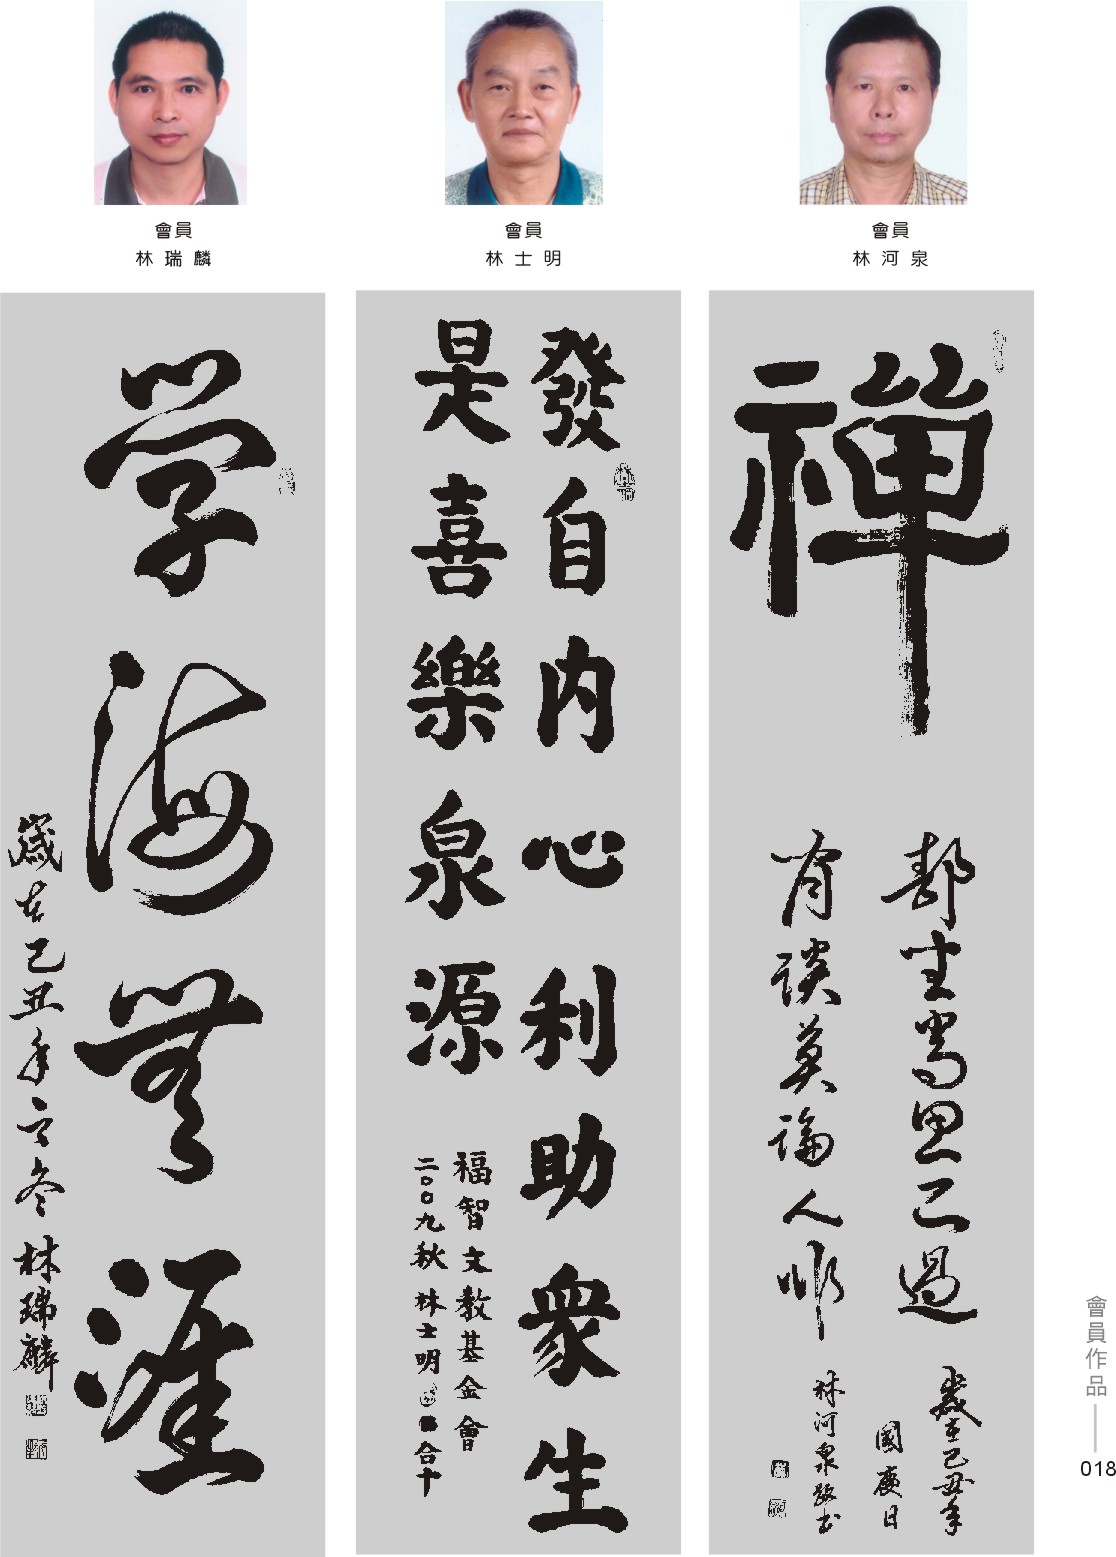 會員
林瑞麟
會員
林士明
會員
林河泉
学海無涯
歲在己丑年之冬 林瑞麟
發自內心利助眾生
是喜樂泉源
福智文教基金會
二〇〇九秋 林士明 合十
禪
靜坐常思己過
閒談莫論人非
歲在己丑年
國慶日
林河泉敬書
會員作品
018